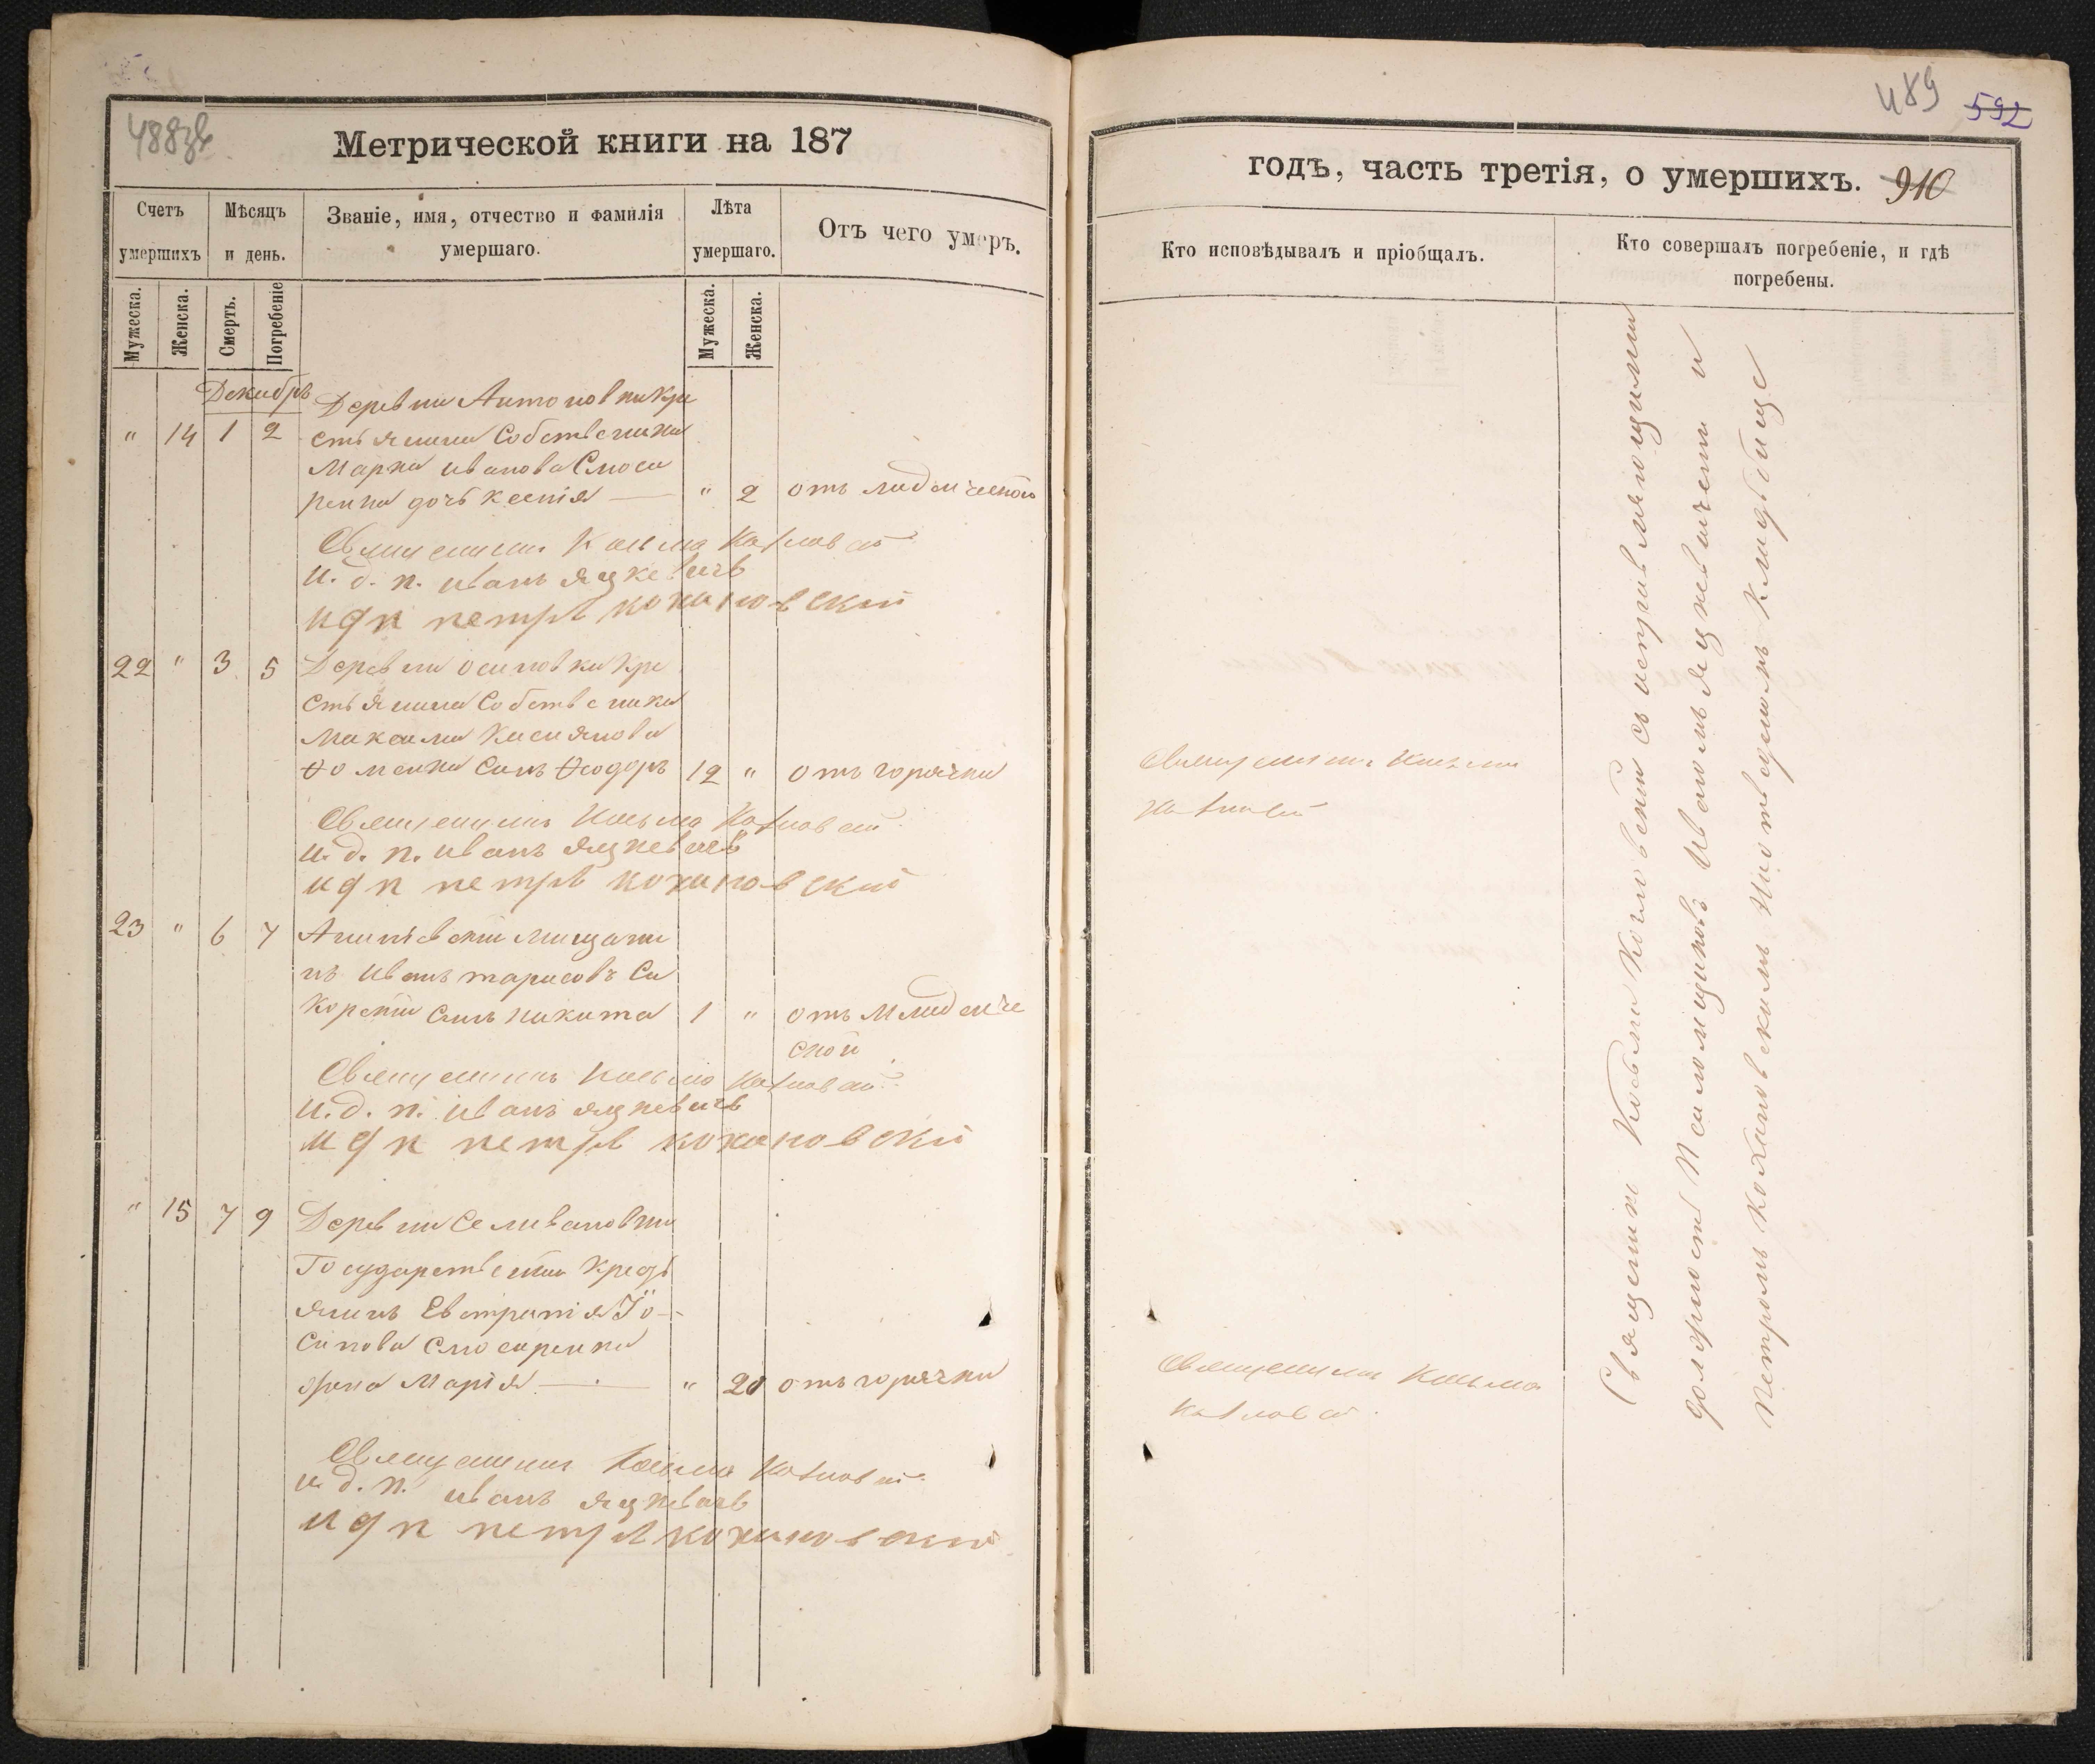 488зв
Метрической книги на 187
Счетъ умершихъ
Мѣсяцъ и день.
Званіе, имя, отчество и фамилія умершаго.
Лѣта умершаго.
Отъ чего умеръ.
Мужеска.
Женска.
Смерть.
Погребеніе
Мужеска.
Женска.
Декабрь
Деревни Антоновки Кре
" 14 1 2 стьянина Собственника
Марка Иванова Слюса
ренка дочь Ксенія — " 2 отъ младенческой
Священникъ Козьма
и. д. п. Иванъ Яцкевичъ
идп петръ кохановский
22 " 3 5 Деревни Осиповки Кре
стьянина Собственика
Максима Касиянова
Ѳоменка Сынъ Ѳеодоръ 12 " отъ горячки
Священникъ Козьма
и. д. п. Иванъ Яцкевичъ
идп петръ кохановский
23 " 6 7 мещани
нъ Иванъ Тарасовъ Си
корскій Сынъ Никита 1 " отъ Младенче
ской
Священникъ Козьма
и. д. п. Иванъ Яцкевичъ
идп петръ кохановский
" 15 7 9 Деревни Селивановки
Государственый Кресть
янинъ Евстратія Іо-
сипова Слюсаренка
жена Марія — " 20 отъ горячки
Священникъ Козьма
и. д. п. Иванъ Яцкевичъ
идп петръ кохановский
489 592
годъ, часть третія, о умершихъ. 910
Кто исповѣдывалъ и пріобщалъ.
Кто совершалъ погребеніе, и гдѣ погребены.
Священникъ Козьма
Священникъ Козьма
Священик Козьма съ исправляющими
должность Псаломщиковъ Иваномъ Яцкевичемъ и
Петромъ Кохановскимъ На отведеномъ Кладбище